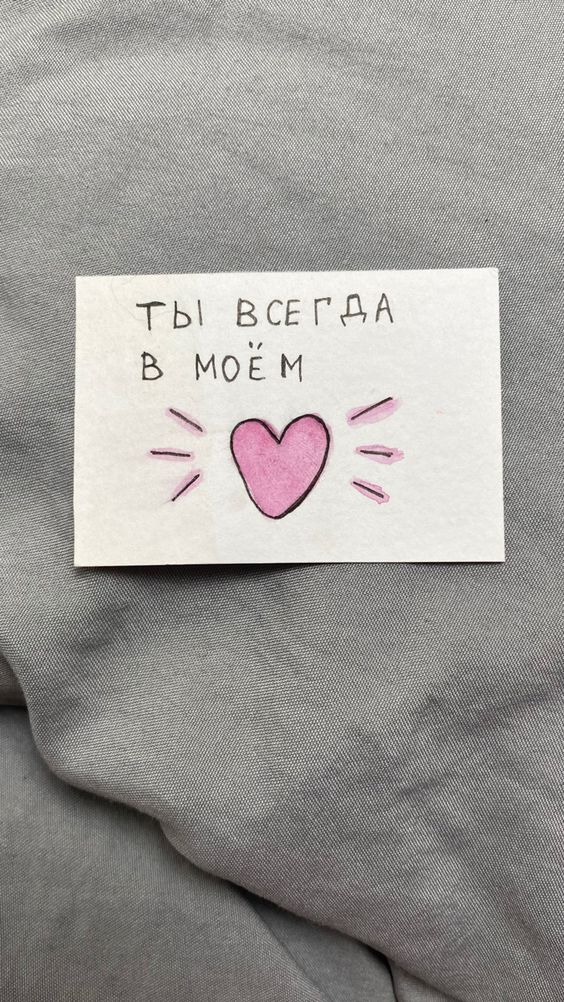 ТЫ ВСЕГДА
В МОЁМ